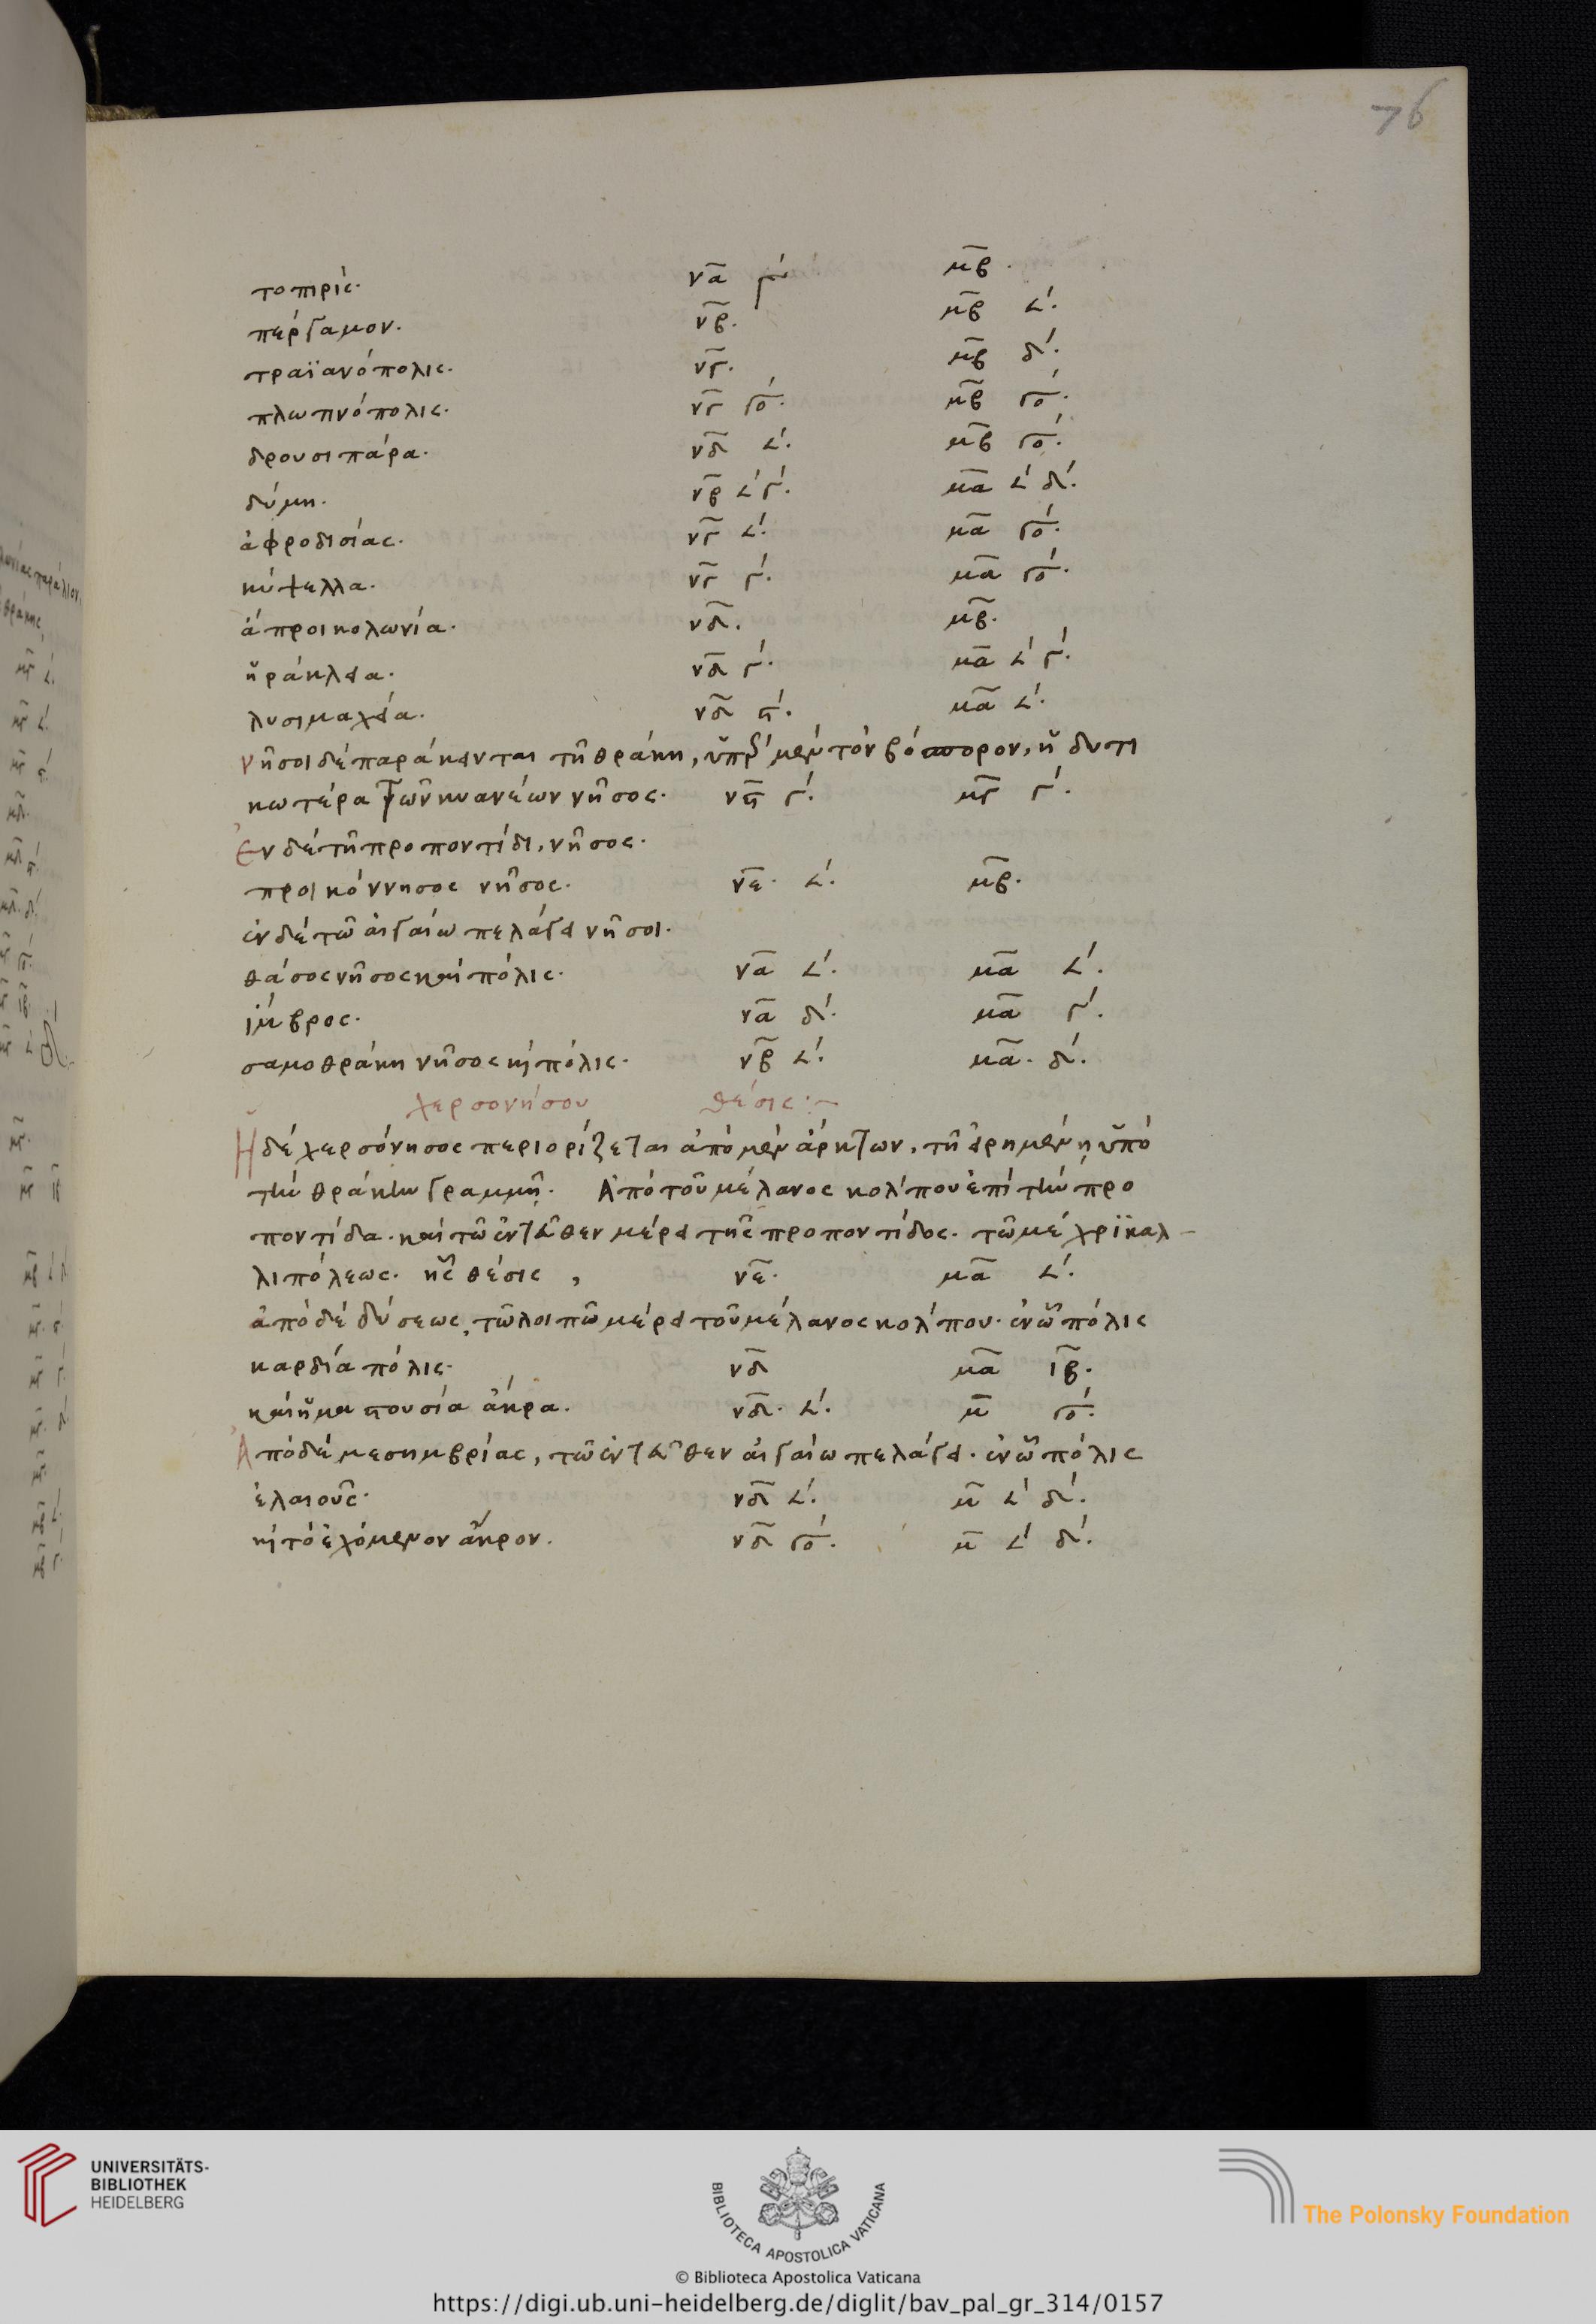 76
τοπιρίς. να μβ.
πέργαμον. νβ. μβ 𐅵ʹ.
τραϊανόπολις. νγ. μβ δʹ.
πλωτινόπολις. νγ γοʹ. μβ γοʹ.
δρουσιπάρα. νδ 𐅵ʹ. μβ γοʹ.
δύμη. νβ 𐅵ʹ γʹ. μα 𐅵ʹ δʹ.
ἀφροδισίας. νγ 𐅵ʹ. μα γοʹ.
κύψελλα. νγ γʹ. μα γοʹ.
ἄπροι κολωνία. νδ. μβ.
ἡράκλεια. νδ γʹ. μα 𐅵ʹ γʹ.
λυσιμαχεία. νδ ϛʹ. μα 𐅵ʹ.
νῆσοι δὲ παράκεινται τῆ θράκη, ὑπὲρ μὲν τὸν βόσπορον, ἡ δυτι
κωτέρα τῶν κυανέων νῆσος. νϛ γʹ. μγ γʹ.
Ἐν δὲ τῆ προποντίδι, νῆσος.
προικόννησος νῆσος. νε. 𐅵ʹ. μβ.
ἐν δὲ τῶ αἰγαίω πελάγει νῆσοι.
θάσος νῆσος καὶ πόλις. να 𐅵ʹ. μα 𐅵ʹ.
ἴμβρος. να δʹ. μα γʹ.
σαμοθράκη νῆσος κὶ πόλις. νβ 𐅵ʹ. μα. δʹ.
χερσονήσου θέσις:~
Ἡ δὲ χερσόνησος περιορίζεται ἀπὸ μὲν ἄρκτων, τῆ εἰρημένη ὑπὸ
τὴν θράκην γραμμῆ. Ἀπὸ τοῦ μέλανος κόλπου ἐπὶ τὴν προ
ποντίδα. καὶ τῶ ἐντεῦθεν μέρει τῆς προποντίδος. τῶ μέχρι καλ-
λιπόλεως. ἧς θέσις, νε. μα 𐅵ʹ.
ἀπὸ δὲ δύσεως, τῶ λοιπῶ μέρει τοῦ μέλανος κόλπου. ἐν ὧ πόλις
καρδία πόλις. νδ μα ιβ.
καὶ ἡ μαστουσία ἄκρα. νδ. 𐅵ʹ. μ γοʹ.
Ἀπὸ δὲ μεσημβρίας, τῶ ἐντεῦθεν αἰγαίω πελάγει. ἐν ὧ πόλις
ἐλαιοῦς. νδ 𐅵ʹ. μ 𐅵ʹ δʹ.
κὶ τὸ ἐχόμενον ἄκρον. νδ γοʹ. μ 𐅵ʹ δʹ.
UNIVERSITÄTS-
BIBLIOTHEK
HEIDELBERG
BIBLIOTECA APOSTOLICA VATICANA
The Polonsky Foundation
© Biblioteca Apostolica Vaticana
https://digi.ub.uni-heidelberg.de/diglit/bav_pal_gr_314/0157